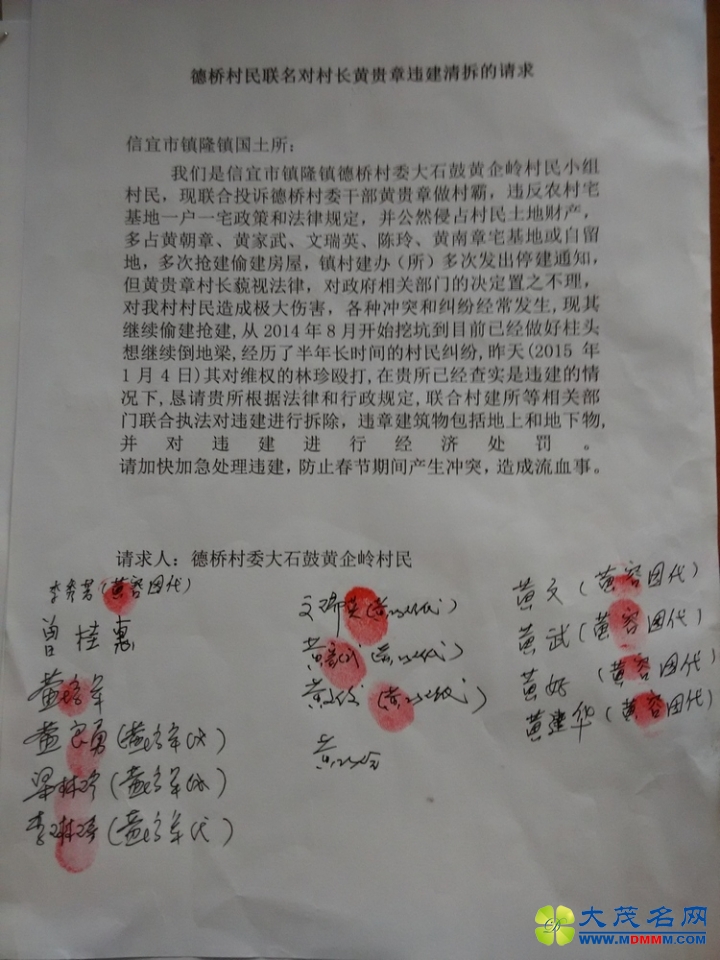 德桥村民联名对村长黄贵章违建清拆的请求
信宜市镇隆镇国土所：
我们是信宜市镇隆镇德桥村委大石鼓黄企岭村民小组
村民，现联合投诉德桥村委干部黄贵章做村霸，违反农村宅
基地一户一宅政策和法律规定，并公然侵占村民土地财产，
多占黄朝章、黄家武、文瑞英、陈玲、黄南章宅基地或自留
地，多次抢建偷建房屋，镇村建办（所）多次发出停建通知，
但黄贵章村长藐视法律，对政府相关部门的决定置之不理，
对我村村民造成极大伤害，各种冲突和纠纷经常发生,现其
继续偷建抢建,从2014年8月开始挖坑到目前已经做好柱头
想继续倒地梁,经历了半年长时间的村民纠纷,昨天(2015 年
1月4日)其对维权的林珍殴打,在贵所已经查实是违建的情
况下,恳请贵所根据法律和行政规定,联合村建所等相关部
门联合执法对违建进行拆除，违章建筑物包括地上和地下物,
并对违建进行经济处罚。
请加快加急处理违建，防止春节期间产生冲突，造成流血事。
请求人：德桥村委大石鼓黄企岭村民
(黄容因代)
黄文(黄容因代)
曾桂惠
黄武(黄容因代)
黄好(黄容因代)
黄建华(黄容因代)
大茂名网
WWW.MDMMM.COM